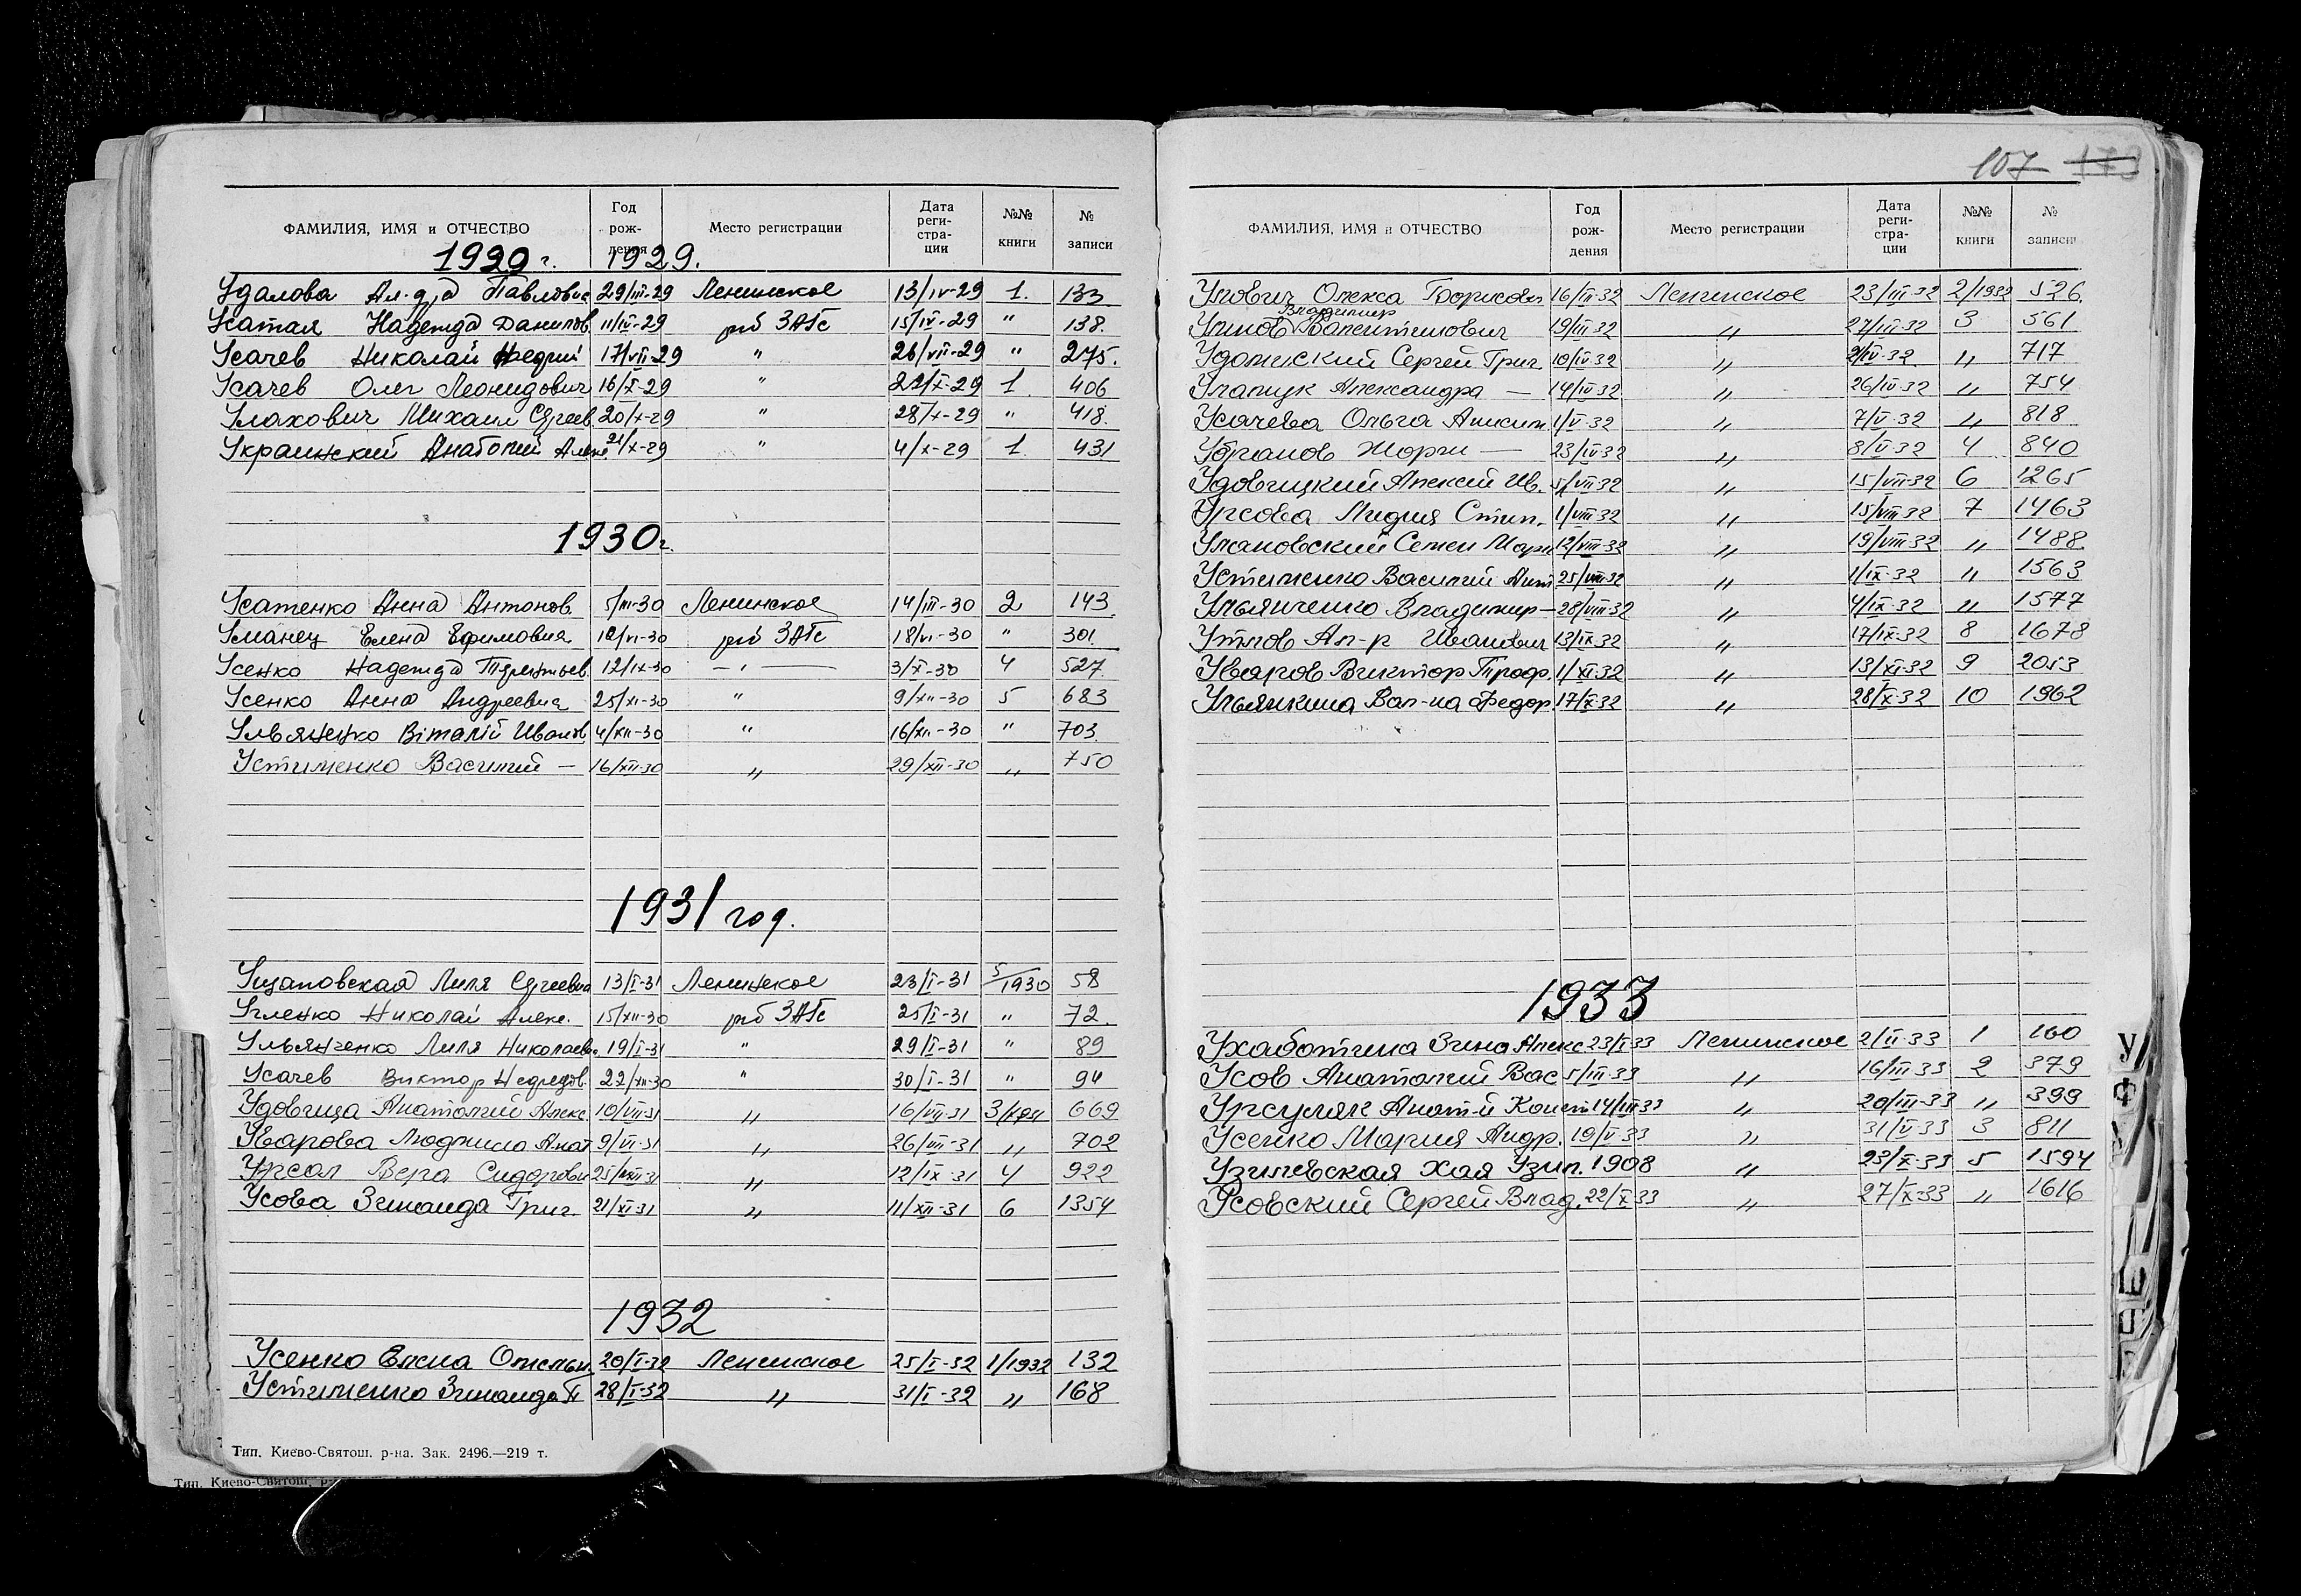 ФАМИЛИЯ, ИМЯ и ОТЧЕСТВО Год рож- дения Место регистрации Дата реги- стра- ции №№ книги № записи
1929 г. 1929.
Удалова Ал-д Павловна 29/III-29 Ленинское 13/IV-29 1. 133
Усатая Надежда Данилов. 11/IV-29 рб ЗАГс 15/IV-29 " 138.
Усачев Николай 17/VII-29 " 26/VII-29 " 275.
Усачев Олег Леонидович 16/X-29 " 22/X-29 1 406
Улахович Михаил Сергеев. 20/X-29 " 28/X-29 " 418.
Украинский Анатолий Алекс. 21/X-29 " 4/X-29 1 431
1930 г.
Усатенко Анна Антонов. 5/III-30 Ленинское 14/III-30 2 143
Уманец Елена Ефимовна 12/VI-30 рб ЗАГс 18/VI-30 " 301.
Усенко Надежда Терентьев. 12/IX-30 — " — 3/X-30 4 527.
Усенко Анна Андреевна 25/XI-30 " 9/XII-30 5 683
Ульяненко Віталій Иванов 4/XII-30 " 16/XII-30 " 703.
Устименко Василий — 16/XII-30 " 29/XII-30 " 750
1931 год.
Лиля Сергеевна 13/I-31 Ленинское 23/I-31 5/1930 58
Угленко Николай Алекс. 15/XII-30 рб ЗАГс 25/I-31 " 72.
Ульянченко Лиля Николаевн. 19/I-31 " 29/I-31 " 89
Усачев Виктор 22/XII-30 " 30/I-31 " 94
Удовица Анатолий Алекс. 10/VII-31 " 16/VII-31 3/1931 669
Уварова Людмила Анат 9/VII-31 " 26/VII-31 " 702
Урсол Вера Сидоровн 25/VIII-31 " 12/IX-31 4 922
Усова Зинаида Григ. 21/XI-31 " 11/XII-31 6 1354
1932
Усенко Елена Омельян. 20/I-32 Ленинское 25/I-32 1/1932 132
Устименко Зинаида П 28/I-32 " 31/I-32 " 168
Тип. Киево-Святош. р-на. Зак. 2496.—219 т.
Тип. Киево-Святош. р-
107 173
ФАМИЛИЯ, ИМЯ и ОТЧЕСТВО Год рож- дения Место регистрации Дата реги- стра- ции №№ книги № записи
Улович Олекса Борисович 16/III-32 Ленинское 23/III-32 2/1932 526.
Владимир
Улинов Валентинович 19/III-32 " 27/III-32 3 561
Удолинский Сергей Григ. 10/IV-32 " 21/IV-32 " 717
Улапук Александра — 14/IV-32 " 26/IV-32 " 754
Усачева Ольга Аким. 1/V-32 " 7/V-32 " 818
Урганов Жоржи — 23/IV-32 " 8/V-32 4 840
Удовицкий Алексей Ив. 5/VII-32 " 15/VII-32 6 1265
Урсова Лидия Степ. 1/VIII-32 " 15/VIII-32 7 1463
Улановский Семен Марк 12/VIII-32 " 19/VIII-32 " 1488
Устименко Василий Ант 25/VIII-32 " 1/IX-32 " 1563
Ульянченко Владимир — 28/VIII-32 " 4/IX-32 " 1577
Утлов Ал-р Иванович 13/IX-32 " 17/IX-32 8 1678
Уваров Виктор Троф. 1/XI-32 " 13/XI-32 9 2053
Ульянкина Вал-на Федор. 17/X-32 " 28/X-32 10 1962
1933
Ухаботина Зина Алекс 23/I-33 Ленинское 2/II-33 1 160
Усов Анатолий Вас 5/III-33 " 16/III-33 2 379
Урсуляк Анат-й Конст 14/III-33 " 20/III-33 " 399
Усенко Мария Андр. 19/V-33 " 31/V-33 3 811
Узилевская Хая Узил. 1908 " 23/X-33 5 1594
Усовский Сергей Влад. 22/X-33 " 27/X-33 " 1616
У
Ф